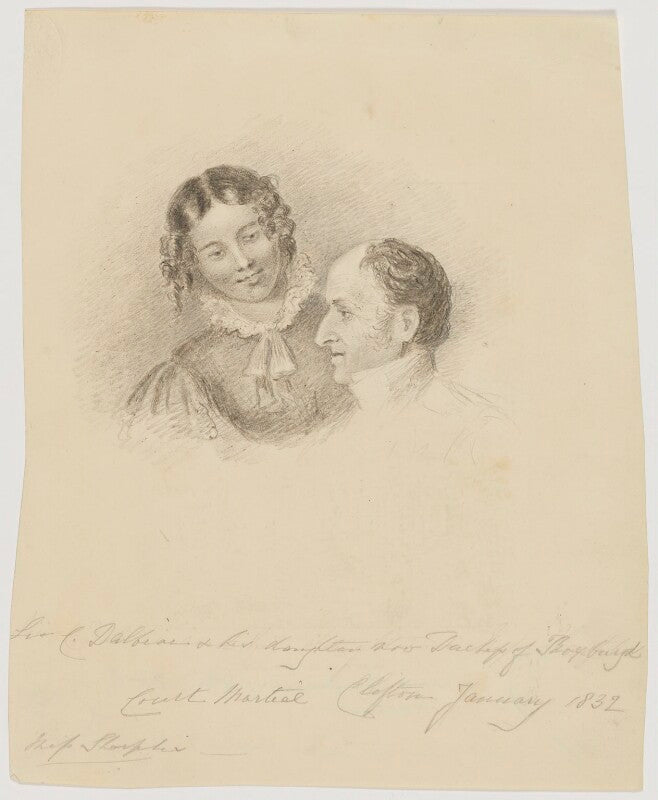 Sir C. Dalbiac & his daughter now Duchess of Roxburgh
Court Martial Clifton January 1832
Miss Sharples